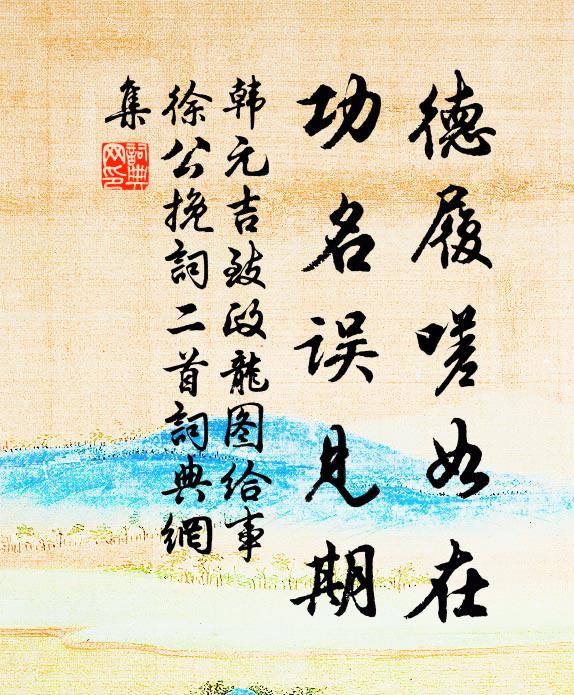 德履嗟如在
功名误见期
韩元吉致政龍图给事
徐公挽詞二首詞典網
集
詞典
网印